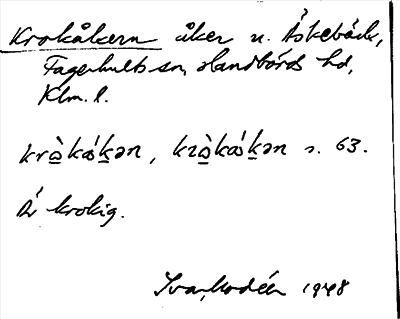 Krokåkern åker u. Äskebäck,
Fagerhults sn, Handbörds hd,
Klm. l.
krò̲kåk̲ən, krò̲kåk̲ən s. 63.
Är krokig.
Ivar Modéer 1948